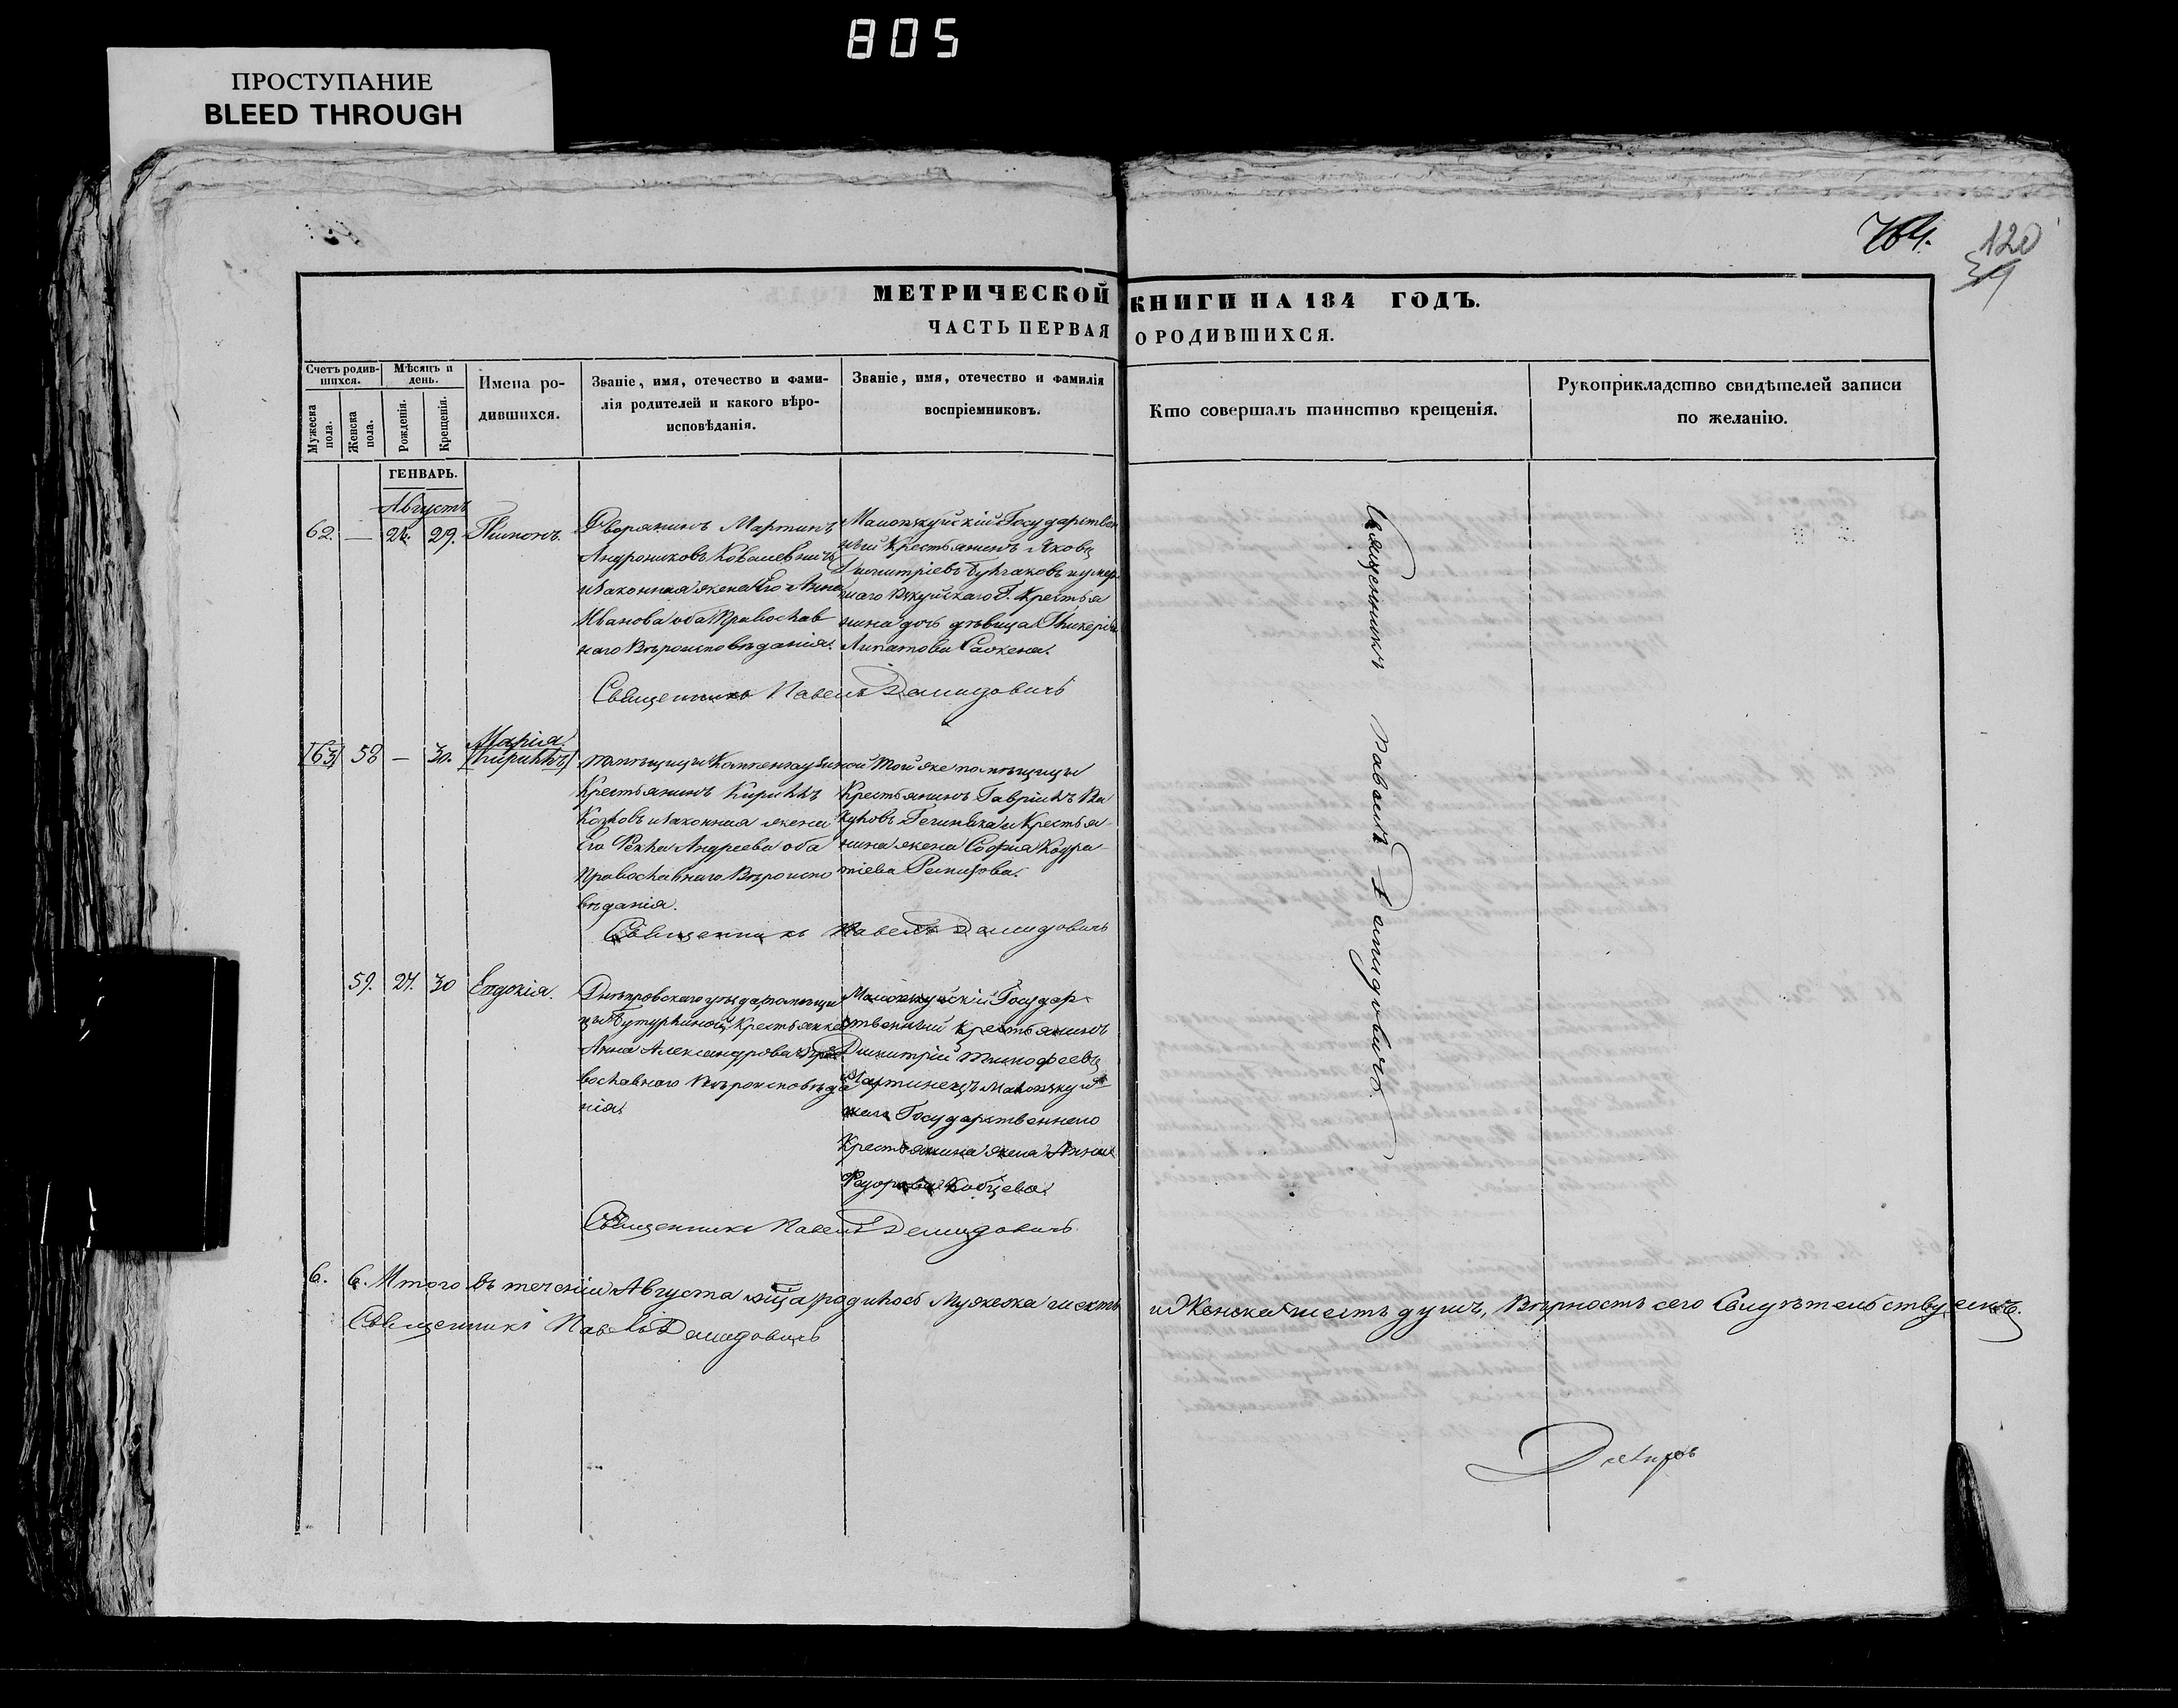 805
ПРОСТУПАНИЕ
BLEED THROUGH
764.
120
39
МЕТРИЧЕСКОЙ КНИГИ НА 184 ГОДЪ.
ЧАСТЬ ПЕРВАЯ О РОДИВШИХСЯ.
Счетъ родившихся.
Мужеска пола.
Женска пола.
Мѣсяцъ и день.
Рожденія.
Крещенія.
Имена родившихся.
Званіе, имя, отечество и фамилія родителей и какого вѣроисповѣданія.
Званіе, имя, отечество и фамилія воспріемниковъ.
Кто совершалъ таинство крещенія.
Рукоприкладство свидѣтелей записи по желанію.
ГЕНВАРЬ.
Августъ
62. — 24. 29. Пимонъ.
Дворянинъ Мартинъ
Андрониковъ Ковалевичъ
и законная жена Его Анна
Иванова оба Православ
наго Вѣроисповѣданія.
Государствен
ный Крестьянинъ Яковъ
Димитріевъ и умер
шаго Г. Крестья
нина дочь дѣвица Гликерія
Липатова
Священникъ Павелъ Демидовичъ
63 58 — 30. Марія
Кириллъ
помѣщицы
Крестьянинъ Кириллъ
Козловъ и законная жена
Его Андреева оба
Православнаго Вѣроиспо
вѣданія.
Той же помѣщицы
Крестьянинъ Гавріилъ Ва
куловъ и Крестья
нина жена Софія Кодра
тіева
Священникъ Павелъ Демидовичъ
59. 27. 30 Евдокія.
Днѣпровскаго уѣзда помѣщи
цы Бутурлиной Крестьянка
Анна Александрова пра
вославнаго Вѣроисповѣда
нія.
Государ
ственный крестьянинъ
Димитрій Тимофеевъ
Мартинецъ
скаго Государственнаго
Крестьянина жена Анна
Федорова Кобцева.
Священникъ Павелъ Демидовичъ
Священникъ Павелъ Демидовичъ
6. 6. Итого въ теченіи Августа мца родилось Мужеска шесть и Женска шесть душъ, Вѣрность сего Свидѣтельствуемъ.
Священникъ Павелъ Демидовичъ